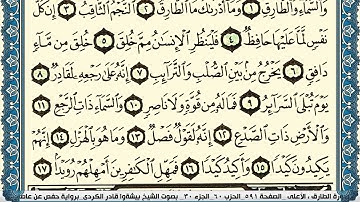 وَالسَّمَاءِ وَالطَّارِقِ ۝١ وَمَا أَدْرَىٰكَ مَا الطَّارِقُ ۝٢ النَّجْمُ الثَّاقِبُ ۝٣ إِن كُلُّ
نَفْسٍ لَّمَّا عَلَيْهَا حَافِظٌ ۝٤ فَلْيَنظُرِ الْإِنسَٰنُ مِمَّ خُلِقَ ۝٥ خُلِقَ مِن مَّاءٍ
دَافِقٍ ۝٦ يَخْرُجُ مِنْ بَيْنِ الصُّلْبِ وَالتَّرَائِبِ ۝٧ إِنَّهُ عَلَىٰ رَجْعِهِ لَقَادِرٌ ۝٨
يَوْمَ تُبْلَى السَّرَائِرُ ۝٩ فَمَا لَهُ مِن قُوَّةٍ وَلَا نَاصِرٍ ۝١٠ وَالسَّمَاءِ ذَاتِ الرَّجْعِ ۝١١
وَالْأَرْضِ ذَاتِ الصَّدْعِ ۝١٢ إِنَّهُ لَقَوْلٌ فَصْلٌ ۝١٣ وَمَا هُوَ بِالْهَزْلِ ۝١٤ إِنَّهُمْ
يَكِيدُونَ كَيْدًا ۝١٥ وَأَكِيدُ كَيْدًا ۝١٦ فَمَهِّلِ الْكَٰفِرِينَ أَمْهِلْهُمْ رُوَيْدًا ۝١٧
الطارق ، الأعلى . الصفحة ٥٩١ الحزب ٦٠ الجزء ٣٠ . بصوت الشيخ بيشةوا قادر الكردي برواية حفص عن عاصم